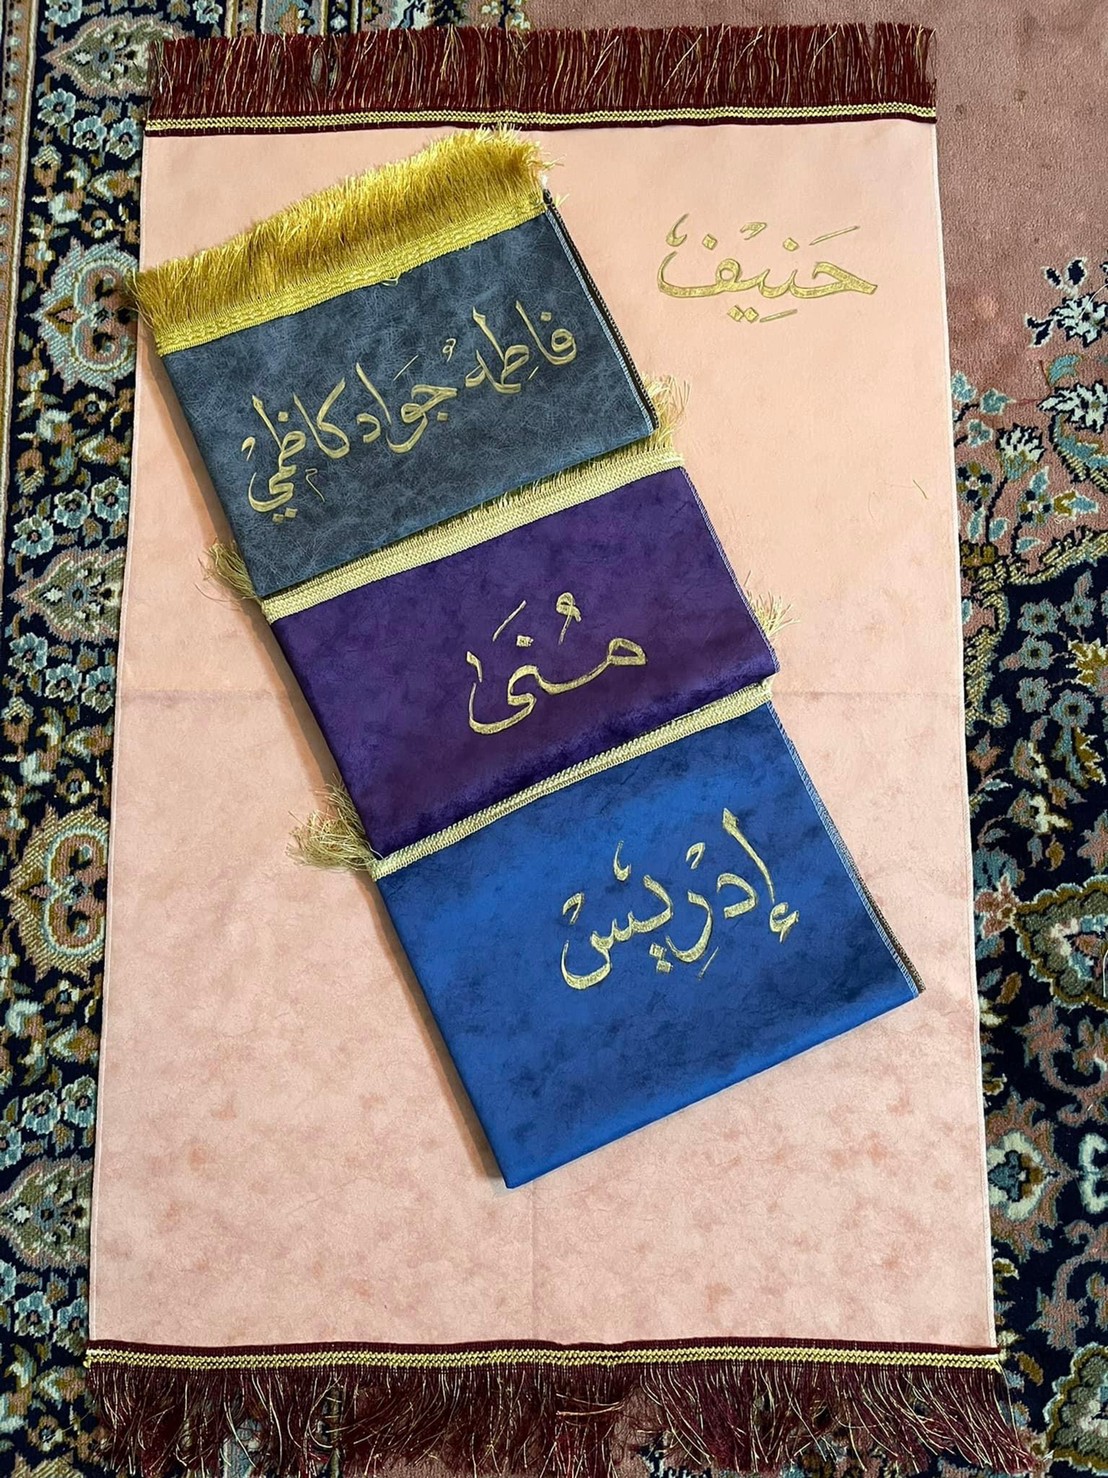 حَنِيْفْ
فَاطِمه جَواد كاظمي
مُنَى
إدْرِيسْ